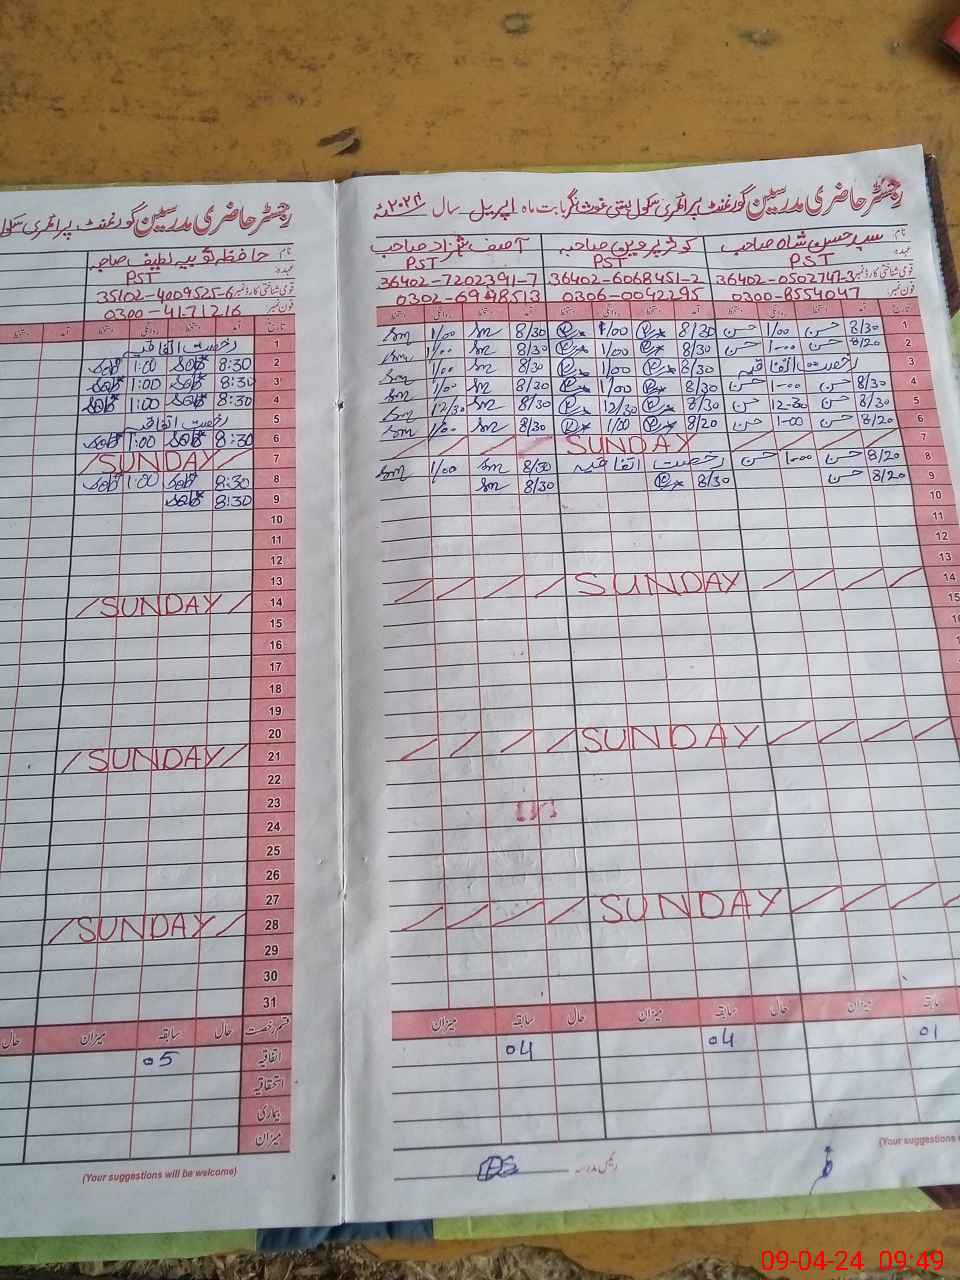 رجسٹر حاضری مدرسین گورنمنٹ پرائمری سکول بستی غوث نگر بابت ماہ اپریل سال ۲۰۲۴ء
نام سید حسن شاہ صاحب کوثر پروین صاحبہ آصف شہزاد صاحب
عہدہ PST PST PST
قومی شناختی کارڈ نمبر 36402-0502747-3 36402-6068451-2 36402-7202391-7
فون نمبر 0300-8554047 0306-0042295 0302-6948513
تاریخ آمد دستخط روانگی دستخط آمد دستخط روانگی دستخط آمد دستخط روانگی دستخط
1 8/30 حسن 1/00 حسن 8/20 1/00 8/30 1/00
2 8/20 حسن 1-00 حسن 8/30 1/00 8/30 1/00
3 رخصت اتفاقیہ 8/30 1/00 8/30 1/00
4 8/30 حسن 1-00 حسن 8/30 1/00 8/30 1/00
5 8/30 حسن 12-30 حسن 8/30 12/30 8/30 12/30
6 8/20 حسن 1-00 حسن 8/20 1/00 8/30 1/00
7 SUNDAY
8 8/20 حسن 1-00 حسن رخصت اتفاقیہ 8/30 1/00
9 8/20 حسن 8/30 8/30
10
11
12
13
14 SUNDAY
15
SUNDAY
SUNDAY
سابقہ میزان حال سابقہ میزان حال سابقہ میزان
01 04 04
(Your suggestions
رئیس مدرسہ
رجسٹر حاضری مدرسین گورنمنٹ پرائمری سکول
نام حافظہ لطیف صاحبہ
عہدہ PST
قومی شناختی کارڈ نمبر 35102-4009525-6
فون نمبر 0300-4171216
تاریخ آمد دستخط روانگی دستخط آمد دستخط
1 رخصت اتفاقیہ
2 8:30 1:00
3 8:30 1:00
4 8:30 1:00
5 رخصت اتفاقیہ
6 8:30 1:00
7 SUNDAY
8 8:30 1:00
9 8:30
10
11
12
13
14 SUNDAY
15
16
17
18
19
20
21 SUNDAY
22
23
24
25
26
27
28 SUNDAY
29
30
31
قسم رخصت حال سابقہ میزان حال
اتفاقیہ 05
استحقاقیہ
بیماری
میزان
(Your suggestions will be welcome)
09-04-24 09:49